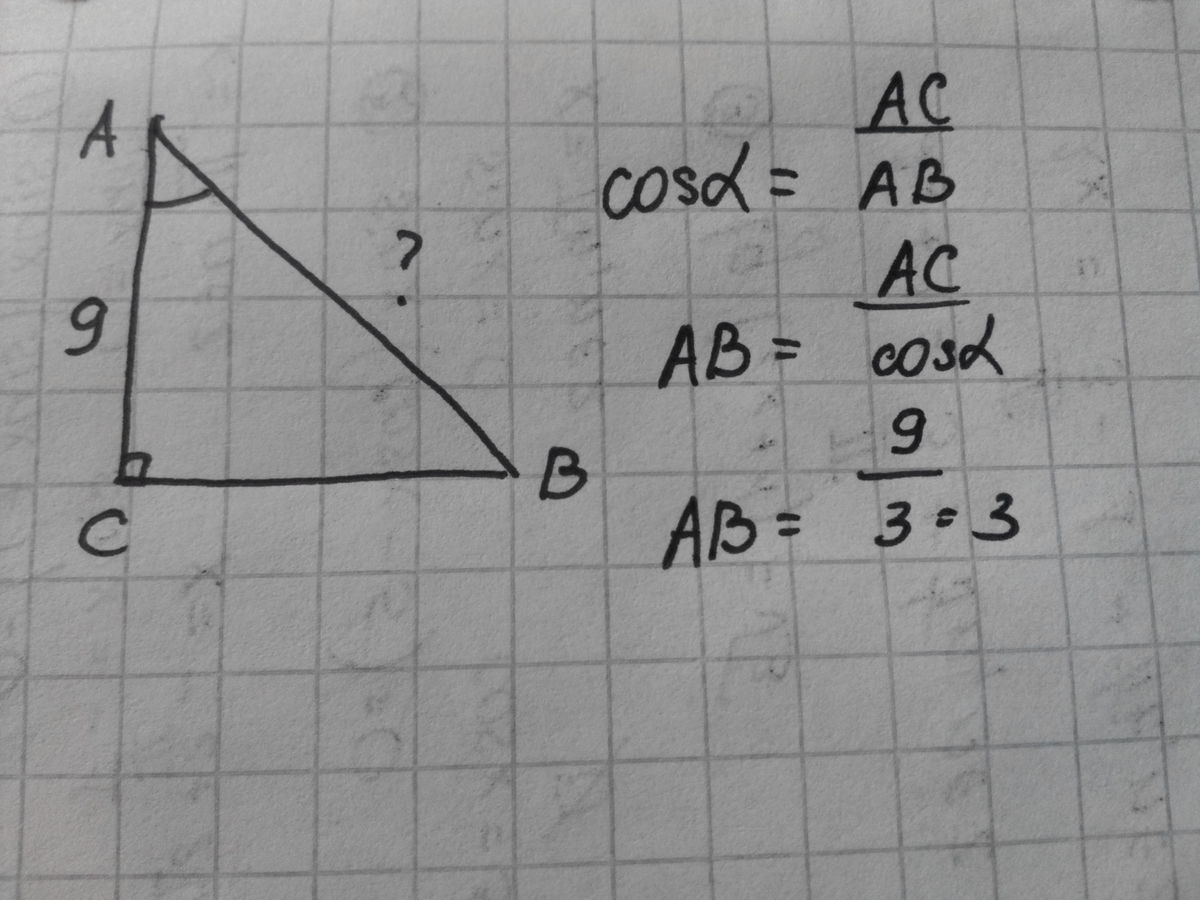 A
9
?
C
B
cosα = AC
AB
AB = AC
cosα
AB = 9
3 = 3